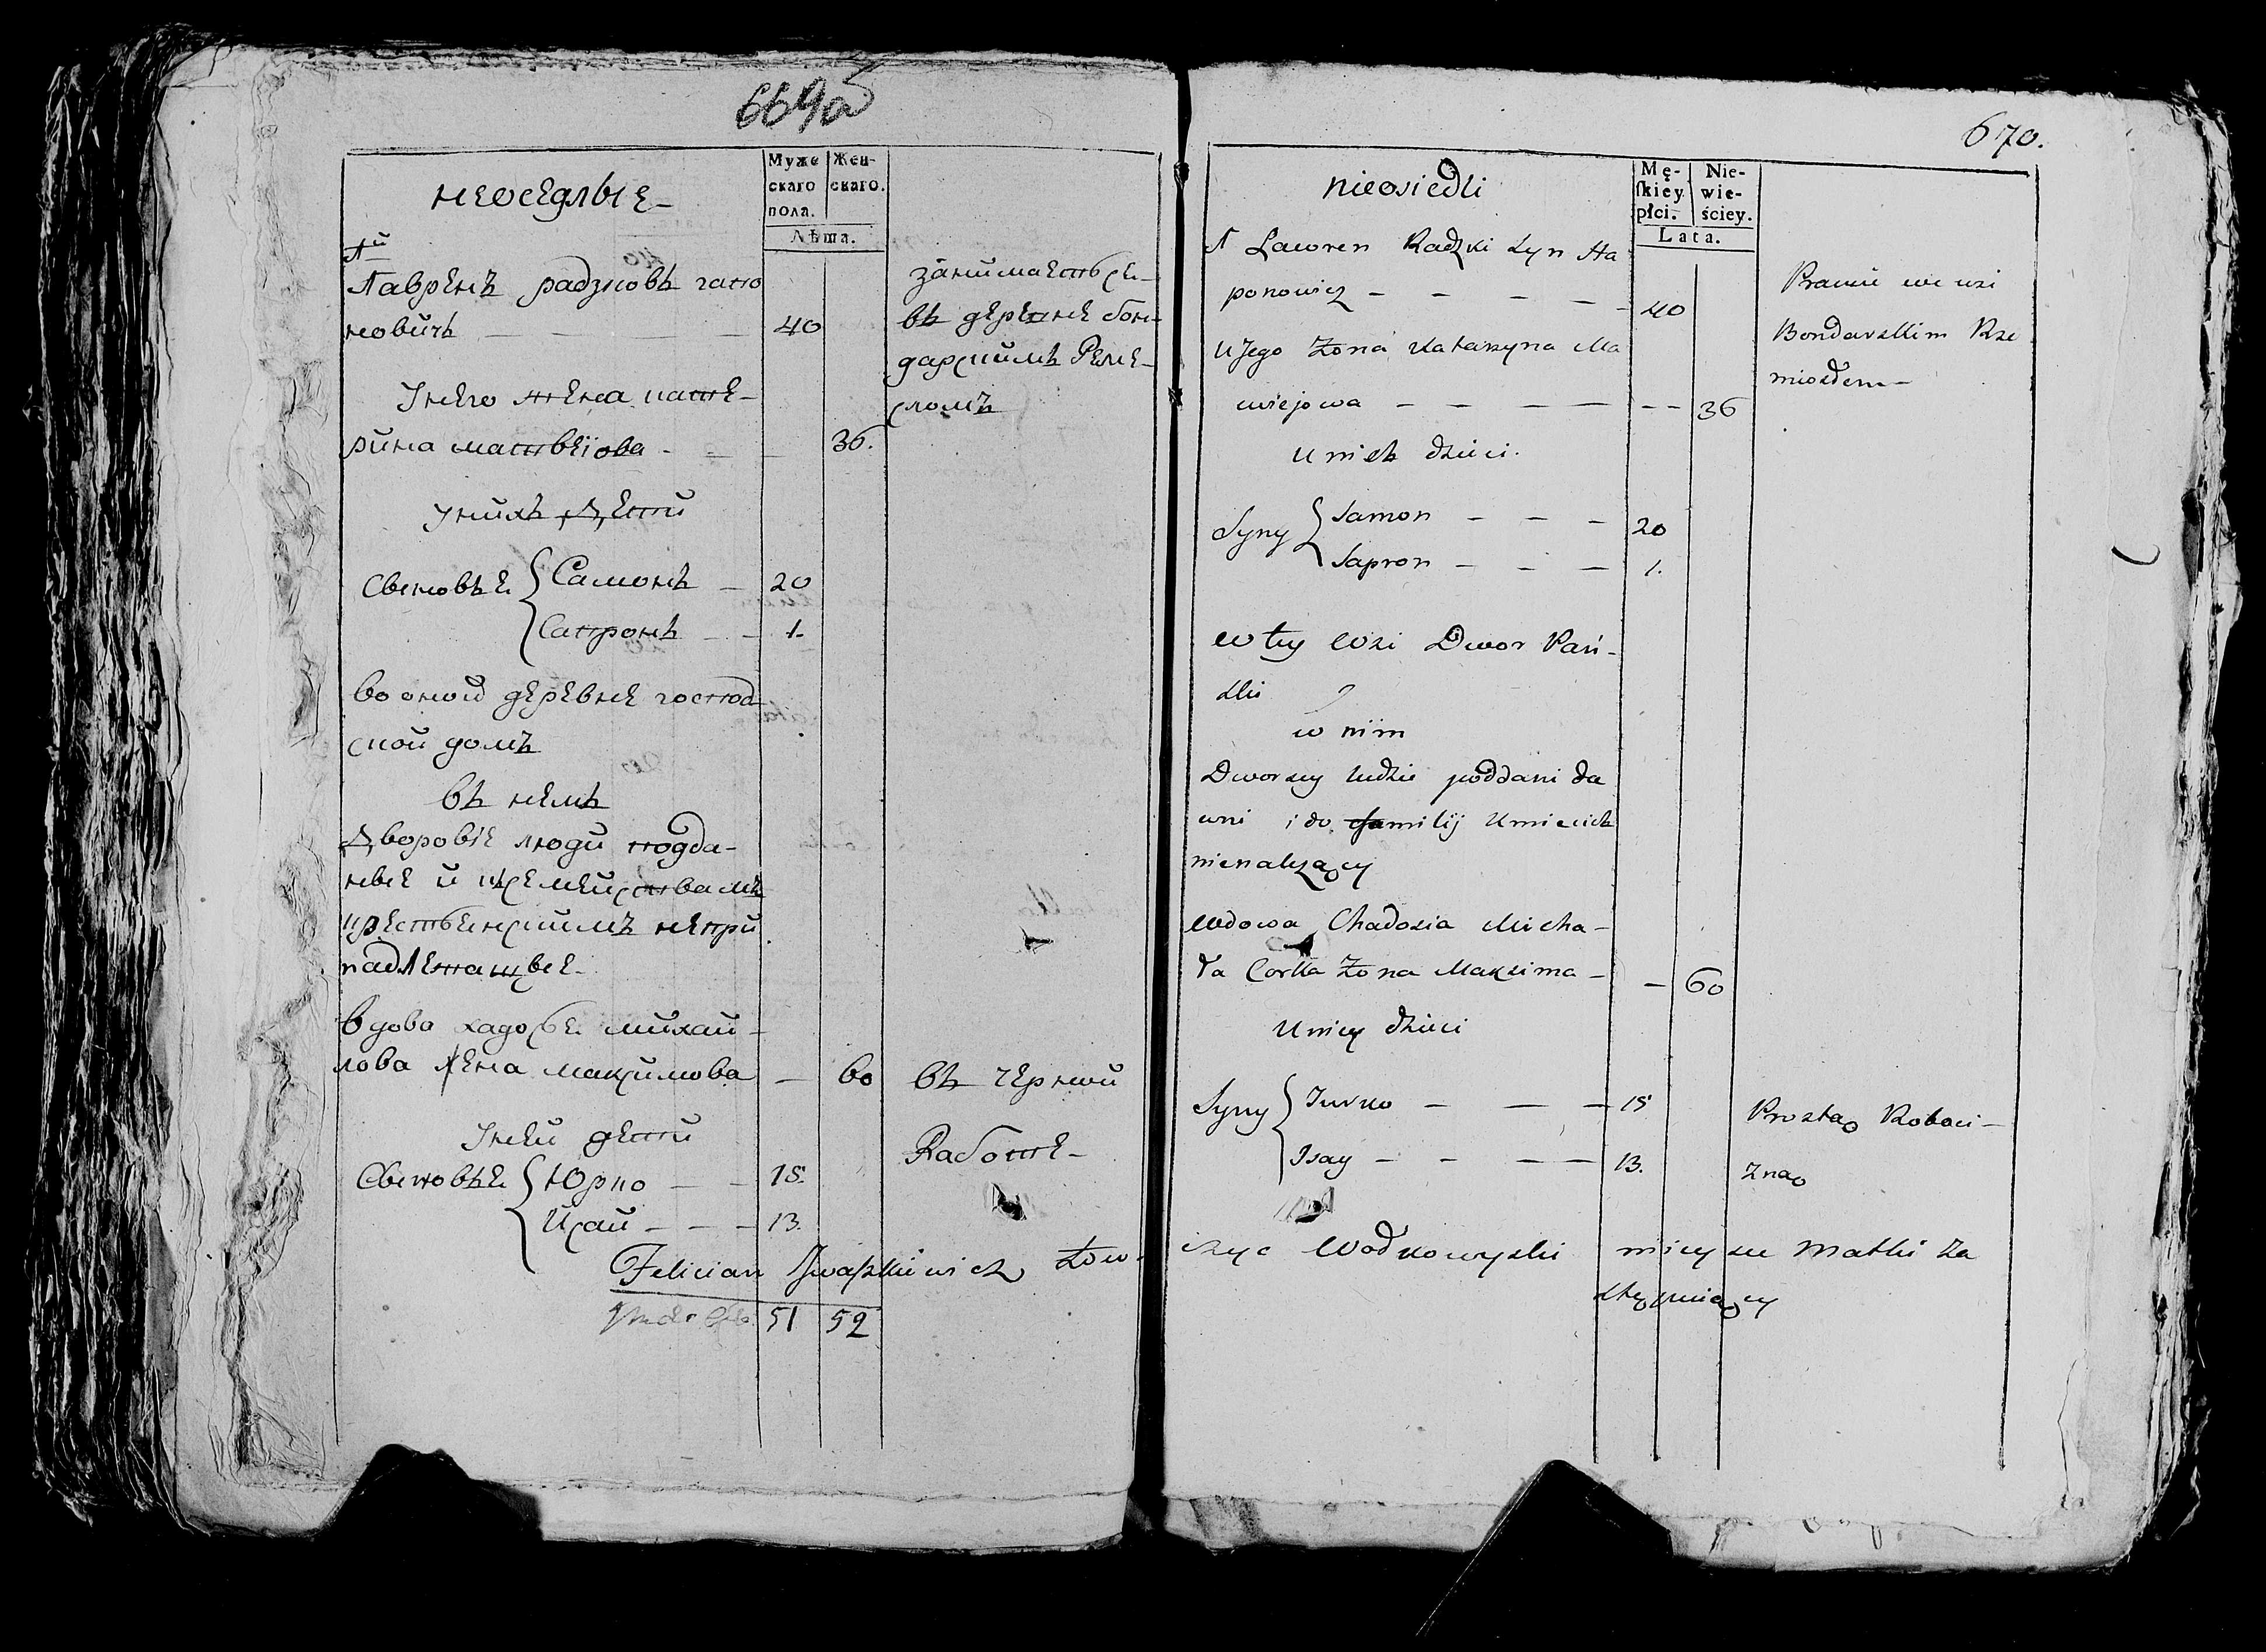 669об
неоседлые
Муже Жен-
скаго скаго.
пола.
Лѣта.
1й
Лавренъ радзковъ гапо
новичъ — — — 40
занимаетьсе-
въ деревне бон-
дарскимъ Реме-
сломъ
Унего жена кате-
рина матвеіова - — — 36.
Унихъ Дети
Сыновье Самонъ — 20
Сапронъ — — 1.
во оной деревне господ
ской домъ
въ немъ
Дворовіе люди подда-
ные й ксемействамъ
крестьенскимъ непри
надлежащые-
вдова хадосье михай-
лова жена максимова — 60
въ черной
Работе-
Уней дети
Сыновье Юрко — — 15.
Исай — — — 13.
Felician Jwaszkiewicz Łow-
51 52
670.
nieosiedli
Mę- Nie-
ſkiey wie-
płci. ściey.
Lata.
1 Lawren Radzki Syn Ha
ponowicz — — — — 40
Pracuie we wsi
Bondarskim Rze
miosłem—
U Jego Żona Katarzyna Ma
wiejowa — — — — -- 36
U nich dzieci.
Syny Samon — — — 20
Sapron — — — 1.
w tey wsi Dwor Pań-
ski
w nim
Dworscy ludzie poddani da
wni i do familij Kmiecich
nienalżący
Wdowa Chadosia Micha-
ła Corka Żona Maksima — — 60
U niey dzieci
Syny Jurko — — — 15
Isay — — — — 13.
Prostą Roboci-
zną
czyc Wodkowyski mieysce Matki Za
stępuiący